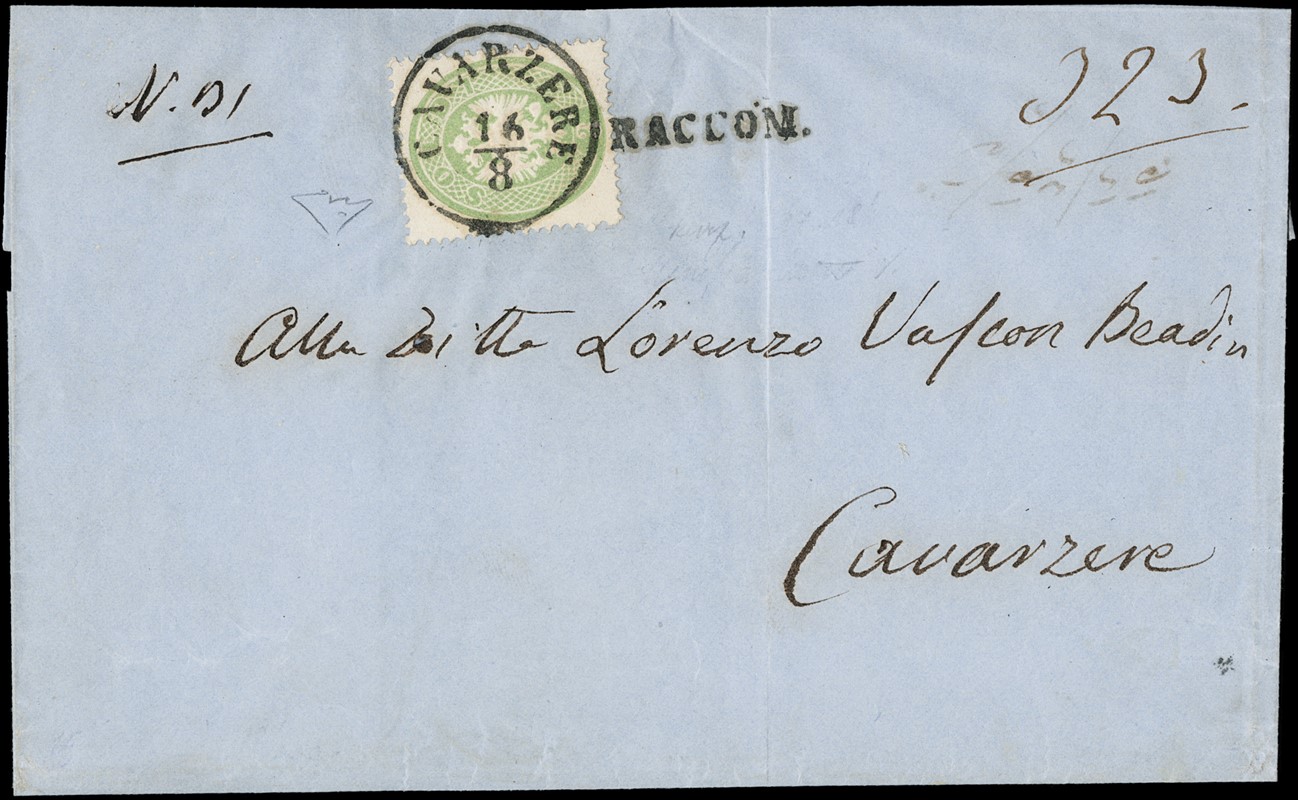 N. 91
CAVARZERE
16
8
RACCOM.
323.
Alla Ditta Lorenzo Vascon Beadin
Cavarzere